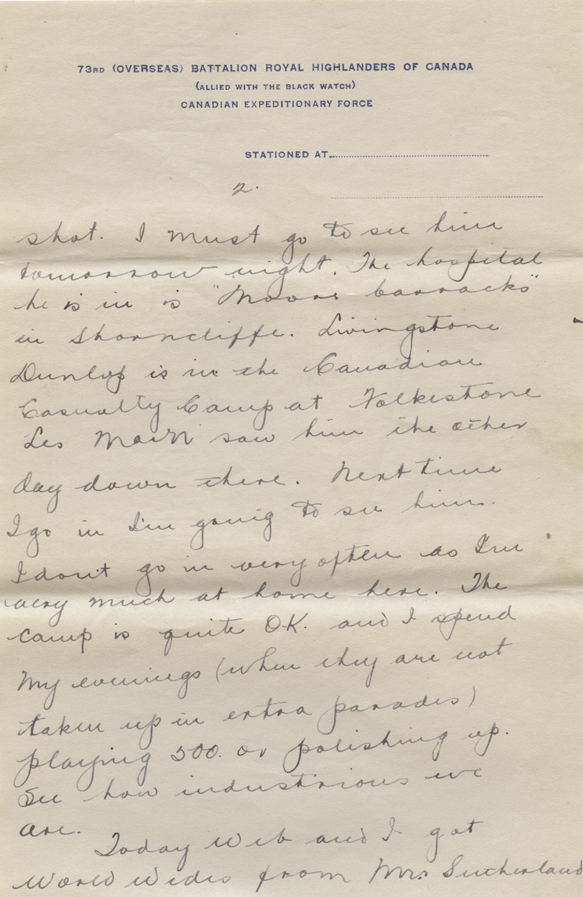 73RD (OVERSEAS) BATTALION ROYAL HIGHLANDERS OF CANADA
(ALLIED WITH THE BLACK WATCH)
CANADIAN EXPEDITIONARY FORCE
STATIONED AT
2.
shot. I must go to see him
tomorrow night. The hospital
he is in is "Moore barracks"
in Shorncliffe. Livingstone
Dunlop is in the Canadian
Casualty Camp at Folkestone
Les saw him the other
day down there. Next time
I go in I'm going to see him.
I don't go in very often as I'm
very much at home here. The
camp is quite O.K. and I spend
my evenings (when they are not
taken up in extra parades)
playing 500. or polishing up.
See how industrious we
are.
Today Web and I got
World Wides from Mrs Sutherland